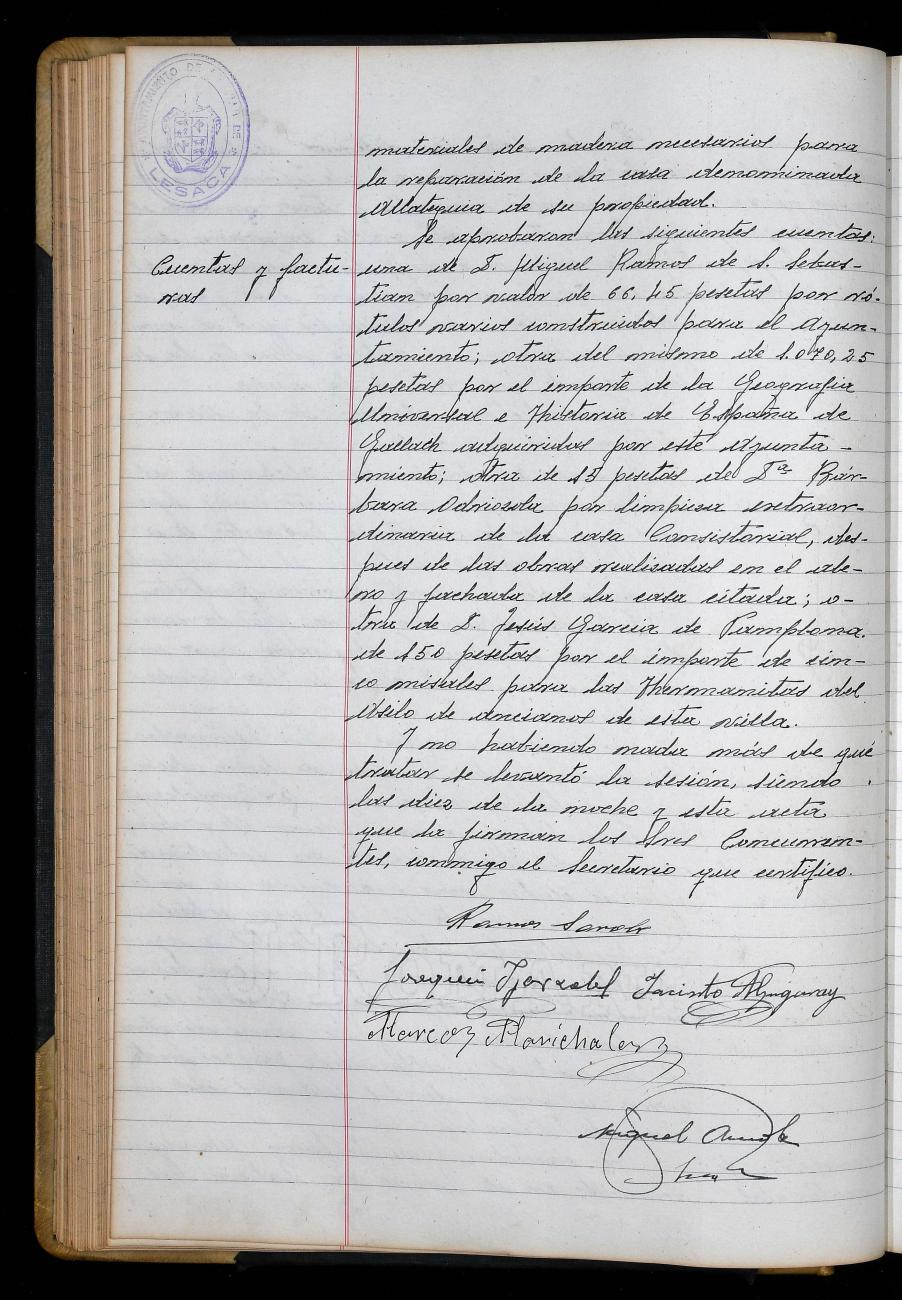 AYUNTAMIENTO DE
LESACA
materiales de madera necesarios para
la reparación de la casa denominada
de su propiedad.
Cuentas y factu-
ras
Se aprobaron las siguientes cuentas:
una de D. Miguel Ramos de S. Sebas-
tian por valor de 66,45 pesetas por ró-
tulos varios construidos para el Ayun-
tamiento; otra del mismo de 1.070,25
pesetas por el importe de la Geografia
Universal e Historia de España de
Gallach adquiridas por este Ayunta-
miento; otra de 15 pesetas de Dª Bár-
bara Odriozola por limpieza extraor-
dinaria de la casa Consistorial, des-
pues de las obras realizadas en el ale-
ro y fachada de la casa citada; o-
tra de D. Jesús Garcia de Pamplona.
de 150 pesetas por el importe de cin-
co misales para las Hermanitas del
Asilo de ancianos de esta villa.
Y no habiendo nada más de qué
tratar se levantó la sesión, siendo
las diez de la noche y esta acta
que la firman los Sres Concurren-
tes, conmigo el Secretario que certifico.
Ramos
Joaquin Jacinto
Marcos Marichalar
Miguel